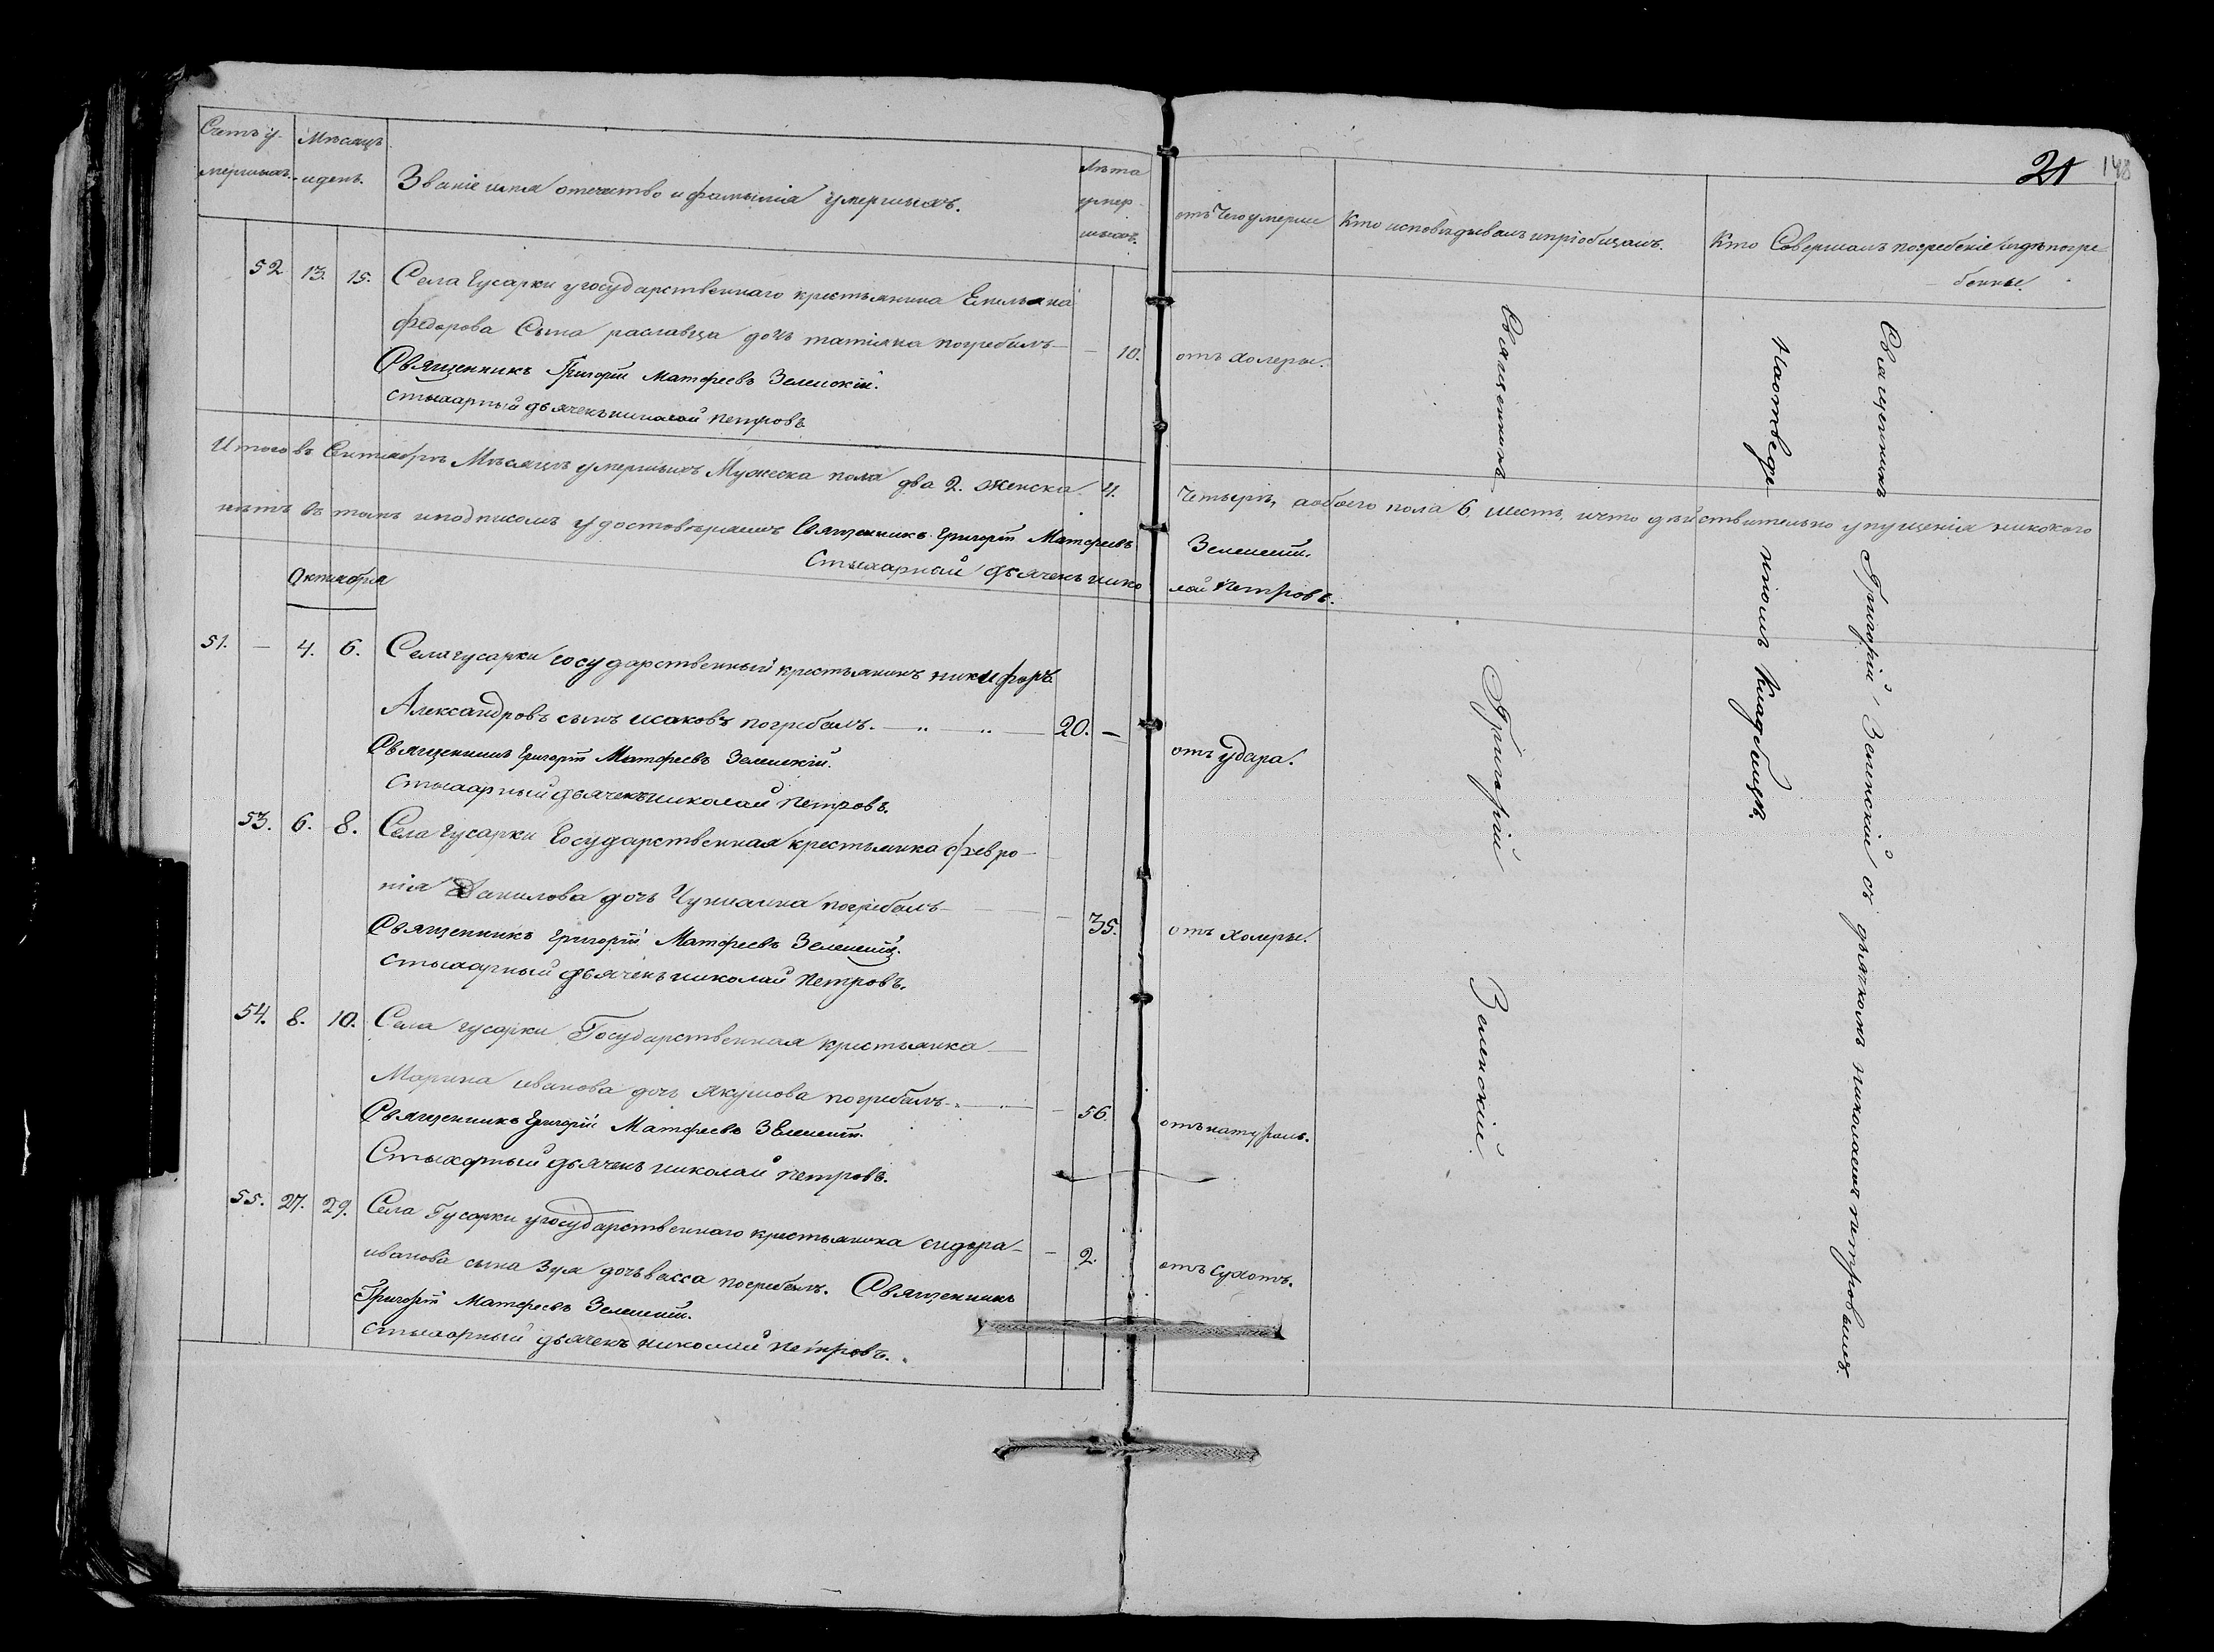 21 148
Счетъ у-
мершихъ.
Мѣсяцъ
и день.
Званіе имя отечество и фамылія умершихъ.
Лѣта
умер-
шихъ.
отъ Чего умерли
Кто исповѣдывалъ и пріобщалъ.
Кто Совершалъ погребеніе и гдѣ погре-
бенны.
52 13. 15. Села Гусарки у государственнаго крестьянина Емельяна
Федорова Сына раславца дочь татіяна погребалъ — — 10. отъ холеры.
Священникъ Григорій Матфеевъ Зеленскій.
Стихарный дьячекъ николай петровъ
Итого въ Сентябрѣ Мѣсяцѣ умершихъ Мужеска пола два 2. женска 4. Четыри, а обоего пола 6, шесть, и что дѣйствительно упущенія никокого
нѣтъ въ томъ и подписомъ удостовѣряемъ Священникъ Григорій Матфеевъ Зеленскій.
Стихарный дьячекъ нико лай петровъ.
Октиабря
51. — 4. 6. Села гусарки государственный крестьянинъ никифоръ
Александровъ сынъ исаковъ погребалъ. — 20. — отъ удара.
Священникъ Григорій Матфеевъ Зеленскій.
Стихарный дьячекъ николай петровъ.
53. 6. 8. Села Гусарки Государственная крестьянка февро-
нія Данилова дочь Чухлина погребалъ — — 35. отъ холеры.
Священникъ Григорій Матфеевъ Зеленскій.
Стихарный дьячекъ николай петровъ.
54. 8. 10. Села гусарки Государственная крестьянка —
Марина иванова дочь якушова погребалъ — — 56. отъ натуралъ.
Священникъ Григорій Матфеевъ Зеленскій.
Стихарный дьячекъ николай петровъ.
55. 27. 29. Села Гусарки у государственнаго крестьянина сидора —
иванова сына Зуя дочь васса погребалъ. Священникъ — 2. отъ сухотъ.
Григорій Матфеевъ Зеленскій.
Стихарный дьячекъ николай петровъ.
Священникъ Григорій Зеленскій.
Священникъ Григорій Зеленскій съ дьячкомъ николаемъ петровымъ.
На отведенномъ Кладбищѣ.